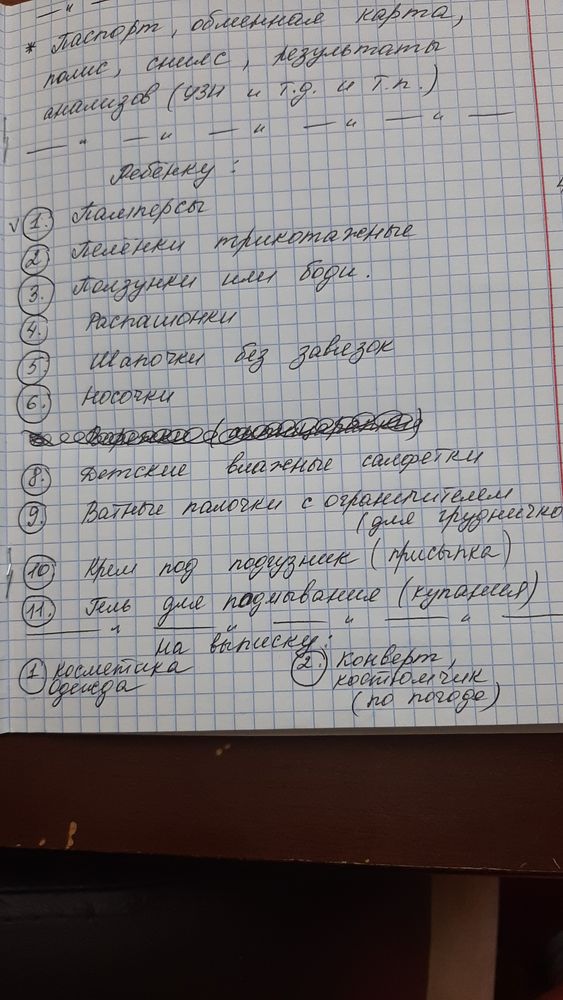 * Паспорт, обменная карта,
полис, снилс, результаты
анализов (УЗИ и т.д. и т.п.)
— " — " — " — " — " —
Ребёнку:
v 1. Памперсы
2. Пелёнки трикотажные
3. Ползунки или боди.
4. Распашонки
5. Шапочки без завязок
6. Носочки
8. Детские влажные салфетки
9. Ватные палочки с ограничителем
(для груднично
10. Крем под подгузник (присыпка)
11. Гель для подмывания (купания)
— " — " — " — " —
На выписку:
1. косметика 2. Конверт,
одежда костюмчик
(по погоде)